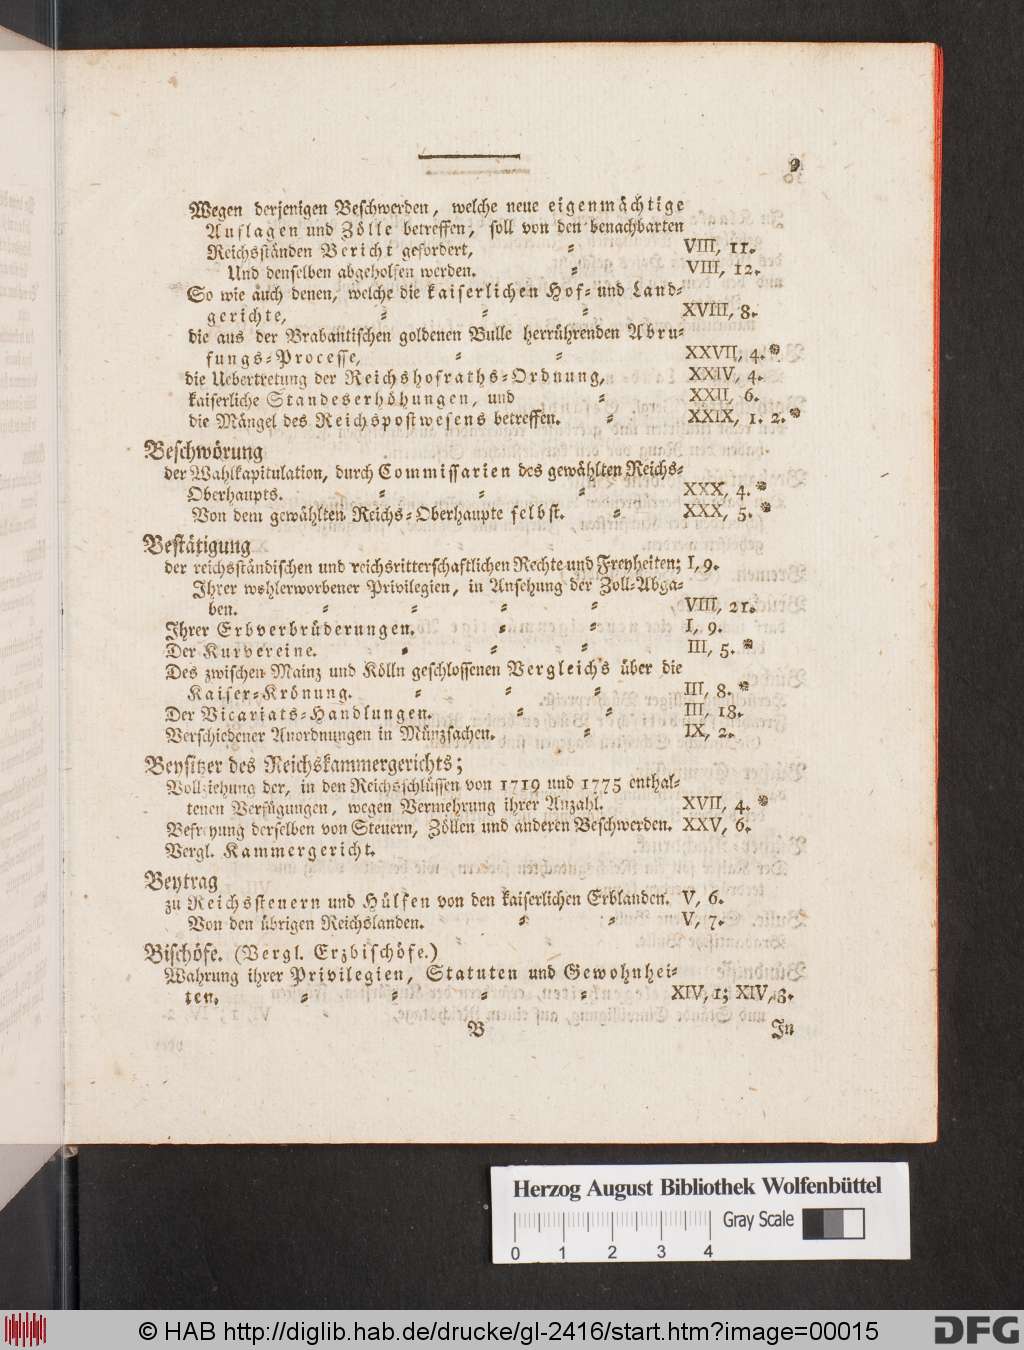 9
Wegen derjenigen Beschwerden, welche neue eigenmächtige
Auflagen und Zölle betreffen, soll von den benachbarten
Reichsständen Bericht gefordert, = VIII, 11.
Und denselben abgeholfen werden. = VIII, 12.
So wie auch denen, welche die kaiserlichen Hof= und Land=
gerichte, = = = XVIII, 8.
die aus der Brabantischen goldenen Bulle herrührenden Abru=
fungs=Processe, = = XXVII, 4.*
die Uebertretung der Reichshofraths=Ordnung, XXIV, 4.
kaiserliche Standeserhöhungen, und = XXII, 6.
die Mängel des Reichspostwesens betreffen. = XXIX, 1. 2.*
Beschwörung
der Wahlkapitulation, durch Commissarien des gewählten Reichs=
Oberhaupts. = = = XXX, 4.*
Von dem gewählten Reichs=Oberhaupte selbst. = XXX, 5.*
Bestätigung
der reichsständischen und reichsritterschaftlichen Rechte und Freyheiten; I, 9.
Ihrer wohlerworbener Privilegien, in Ansehung der Zoll=Abga=
ben. = = = = VIII, 21.
Ihrer Erbverbrüderungen. = = I, 9.
Der Kurvereine. = = = III, 5.*
Des zwischen Mainz und Kölln geschlossenen Vergleichs über die
Kaiser=Krönung. = = = III, 8.*
Der Vicariats=Handlungen. = = III, 18.
Verschiedener Anordnungen in Münzsachen. = IX, 2.
Beysitzer des Reichskammergerichts;
Vollziehung der, in den Reichsschlüssen von 1719 und 1775 enthal=
tenen Verfügungen, wegen Vermehrung ihrer Anzahl. XVII, 4.*
Befreyung derselben von Steuern, Zöllen und anderen Beschwerden. XXV, 6.
Vergl. Kammergericht.
Beytrag
zu Reichssteuern und Hülfen von den kaiserlichen Erblanden. V, 6.
Von den übrigen Reichslanden. = = V, 7.
Bischöfe. (Vergl. Erzbischöfe.)
Wahrung ihrer Privilegien, Statuten und Gewohnhei=
ten. = = = = XIV, 1; XIV, 3.
B In
Herzog August Bibliothek Wolfenbüttel
Gray Scale
0 1 2 3 4
© HAB http://diglib.hab.de/drucke/gl-2416/start.htm?image=00015
DFG